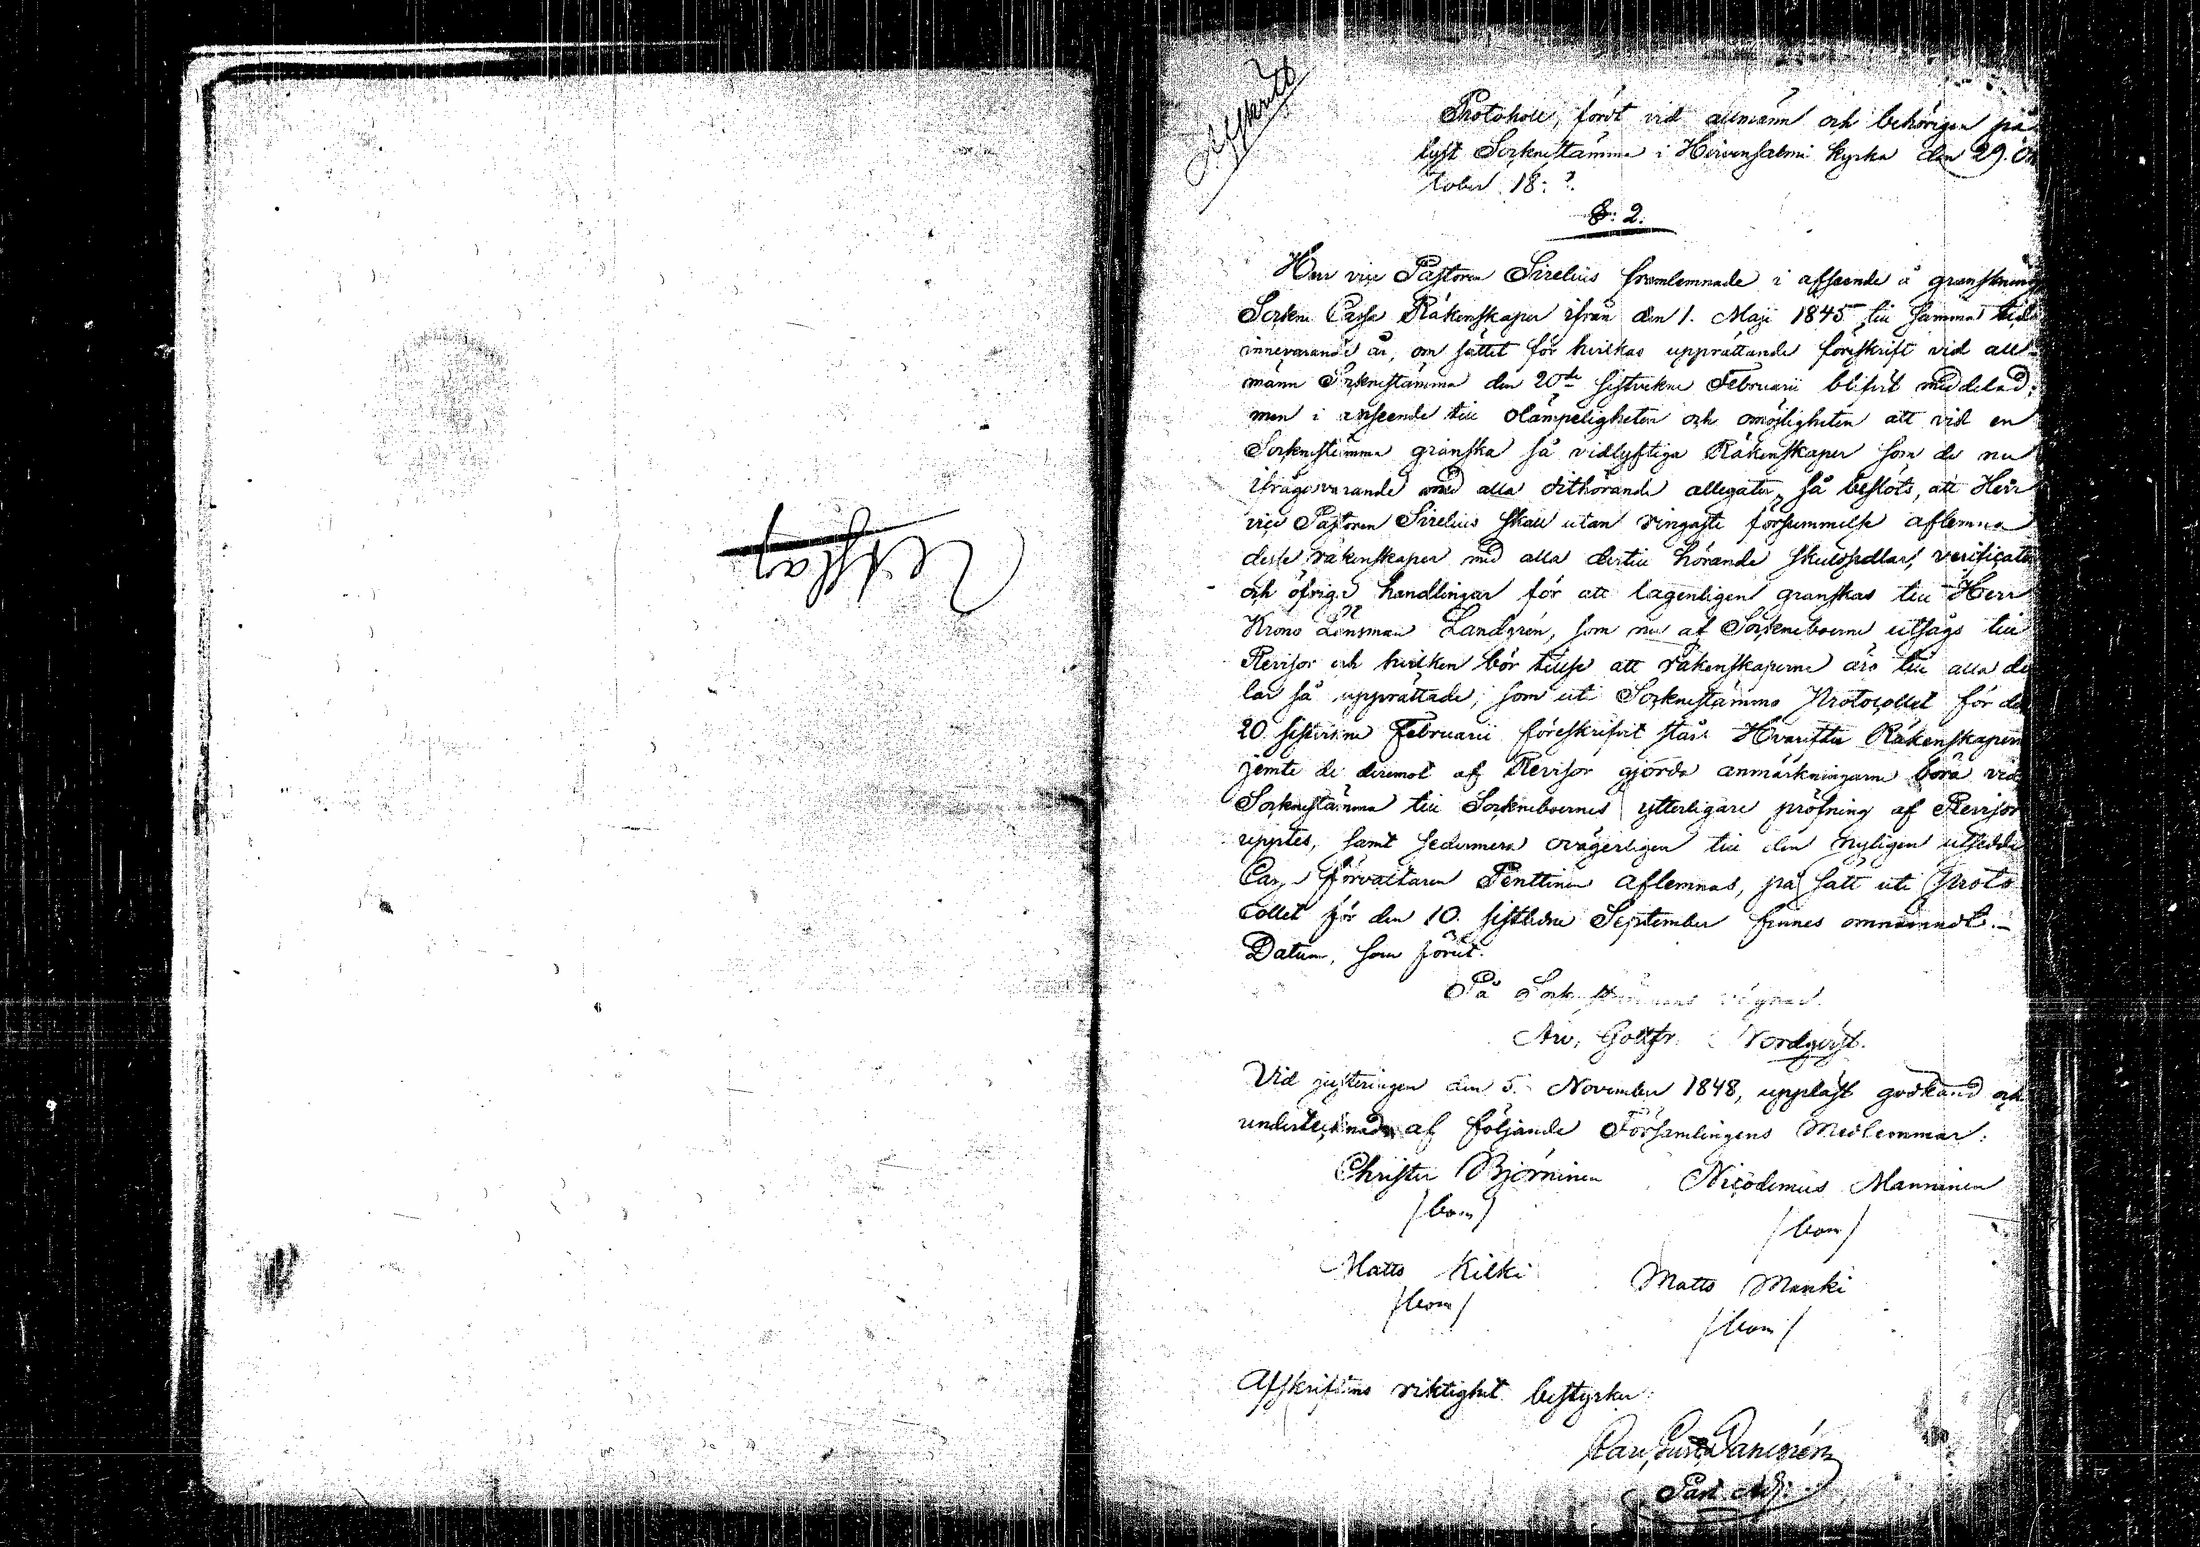 Utslag
Afskrift
Protokoll, fördt vid allmänn och behörigen på
lyst Socknestämma i Hirvensalmi kyrka den 29. Ok
tober 18: ?
§: 2.
Herr vice Pastoren Sirelius framlemnade i afseende å granskning
Sockne Cassa Räkenskaper ifrån den 1. Maji 1845 till samma tid
innevarande år, om sättet för hvilkas upprättande föreskrift vid all-
männ Socknestämma den 20de sistvekne Februarii blifvit meddelad;
men i anseende till olämpeligheten och omöjligheten att vid en
Socknestämma granska så vidlyftiga Räkenskaper som de nu
ifrågavarande med alla dithörande allegater, så beslöts, att Herr
vice Pastoren Sirelius skall utan ringaste försummelse aflemna
desse räkenskaper med alla dertill hörande skuldsedlar, verificater
och öfrige handlingar för att lagenligen granskas till Herr
Krono Länsman Landgrén, som nu af Sockneboerne utsågs till
Revisor och hvilken bör tillse att räkenskaperne äro till alla de
lar så upprättade, som uti Socknestämmo Protocollet för den
20 sistvikne Februarii föreskrifvit står. Hvarefter Räkenskaperne
jemte de deremot af Revisor gjorda anmärkningarne böra vid
Socknestämma till Sockneboernes ytterligare pröfning af Revisor
upptes, samt sedermera ovägerligen till den nyligen utsedde
förvaltaren Penttinen aflemnas, på sätt uti Proto
collet för den 10. sistledne September finnes omnämndt.-
Datum, som förut.
På Sockenstämmans vägnar
Arv. Gottfr. Nordqvist.
Vid justeringen den 5. November 1848, uppläst godkänd och
undertecknad af följande Församlingens Medlemmar:
Christer Björninen Nicodemus Manninen
/bom/ /bom/
Matts Kilki Matts Manki
/bom/ /bom/
Afskriftens riktighet bestyrker:
Carl Gust
Past. Adj: